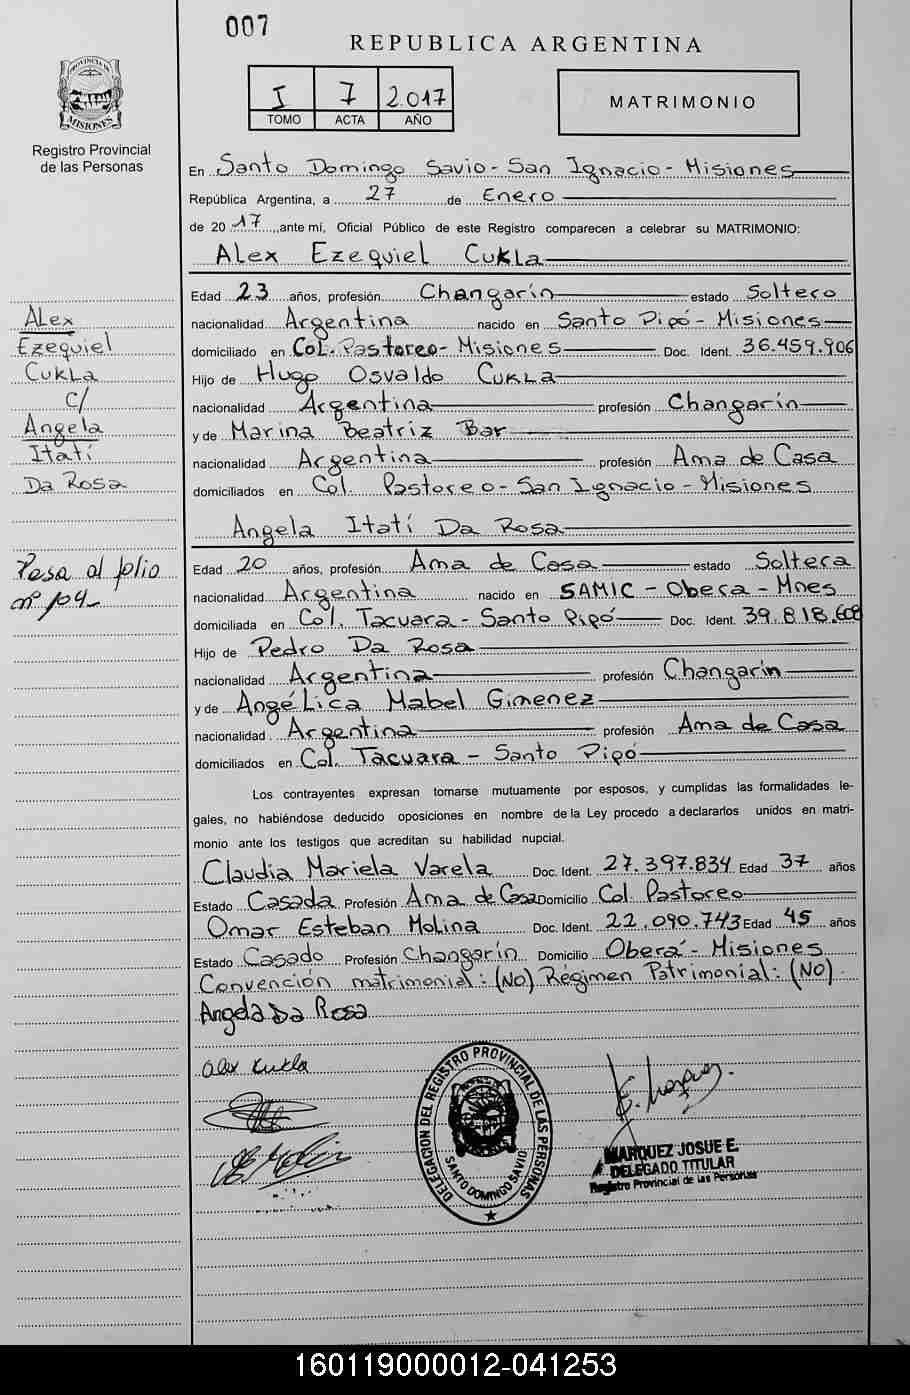 007
REPUBLICA ARGENTINA
PROVINCIA DE
MISIONES
Registro Provincial
de las Personas
I 7 2.017
TOMO ACTA AÑO
MATRIMONIO
En Santo Domingo Savio - San Ignacio - Misiones
República Argentina, a 27 de Enero
de 20 17, ante mí, Oficial Público de este Registro comparecen a celebrar su MATRIMONIO:
Alex Ezequiel Cukla
Edad 23 años, profesión Changarín estado Soltero
nacionalidad Argentina nacido en Santo Pipó - Misiones
domiciliado en Col. Pastoreo - Misiones Doc. Ident. 36.459.906
Hijo de Hugo Osvaldo Cukla
nacionalidad Argentina profesión Changarín
y de Marina Beatriz Bar
nacionalidad Argentina profesión Ama de Casa
domiciliados en Col. Pastoreo - San Ignacio - Misiones
Angela Itatí Da Rosa
Edad 20 años, profesión Ama de Casa estado Soltera
nacionalidad Argentina nacido en SAMIC - Obera - Mnes
domiciliada en Col. Tacuara - Santo Pipó Doc. Ident. 39.818.608
Hijo de Pedro Da Rosa
nacionalidad Argentina profesión Changarín
y de Angélica Mabel Gimenez
nacionalidad Argentina profesión Ama de Casa
domiciliados en Col. Tacuara - Santo Pipó
Los contrayentes expresan tomarse mutuamente por esposos, y cumplidas las formalidades le-
gales, no habiéndose deducido oposiciones en nombre de la Ley procedo a declararlos unidos en matri-
monio ante los testigos que acreditan su habilidad nupcial.
Claudia Mariela Varela Doc. Ident. 27.397.834 Edad 37 años
Estado Casada Profesión Ama de Casa Domicilio Col. Pastoreo
Omar Esteban Molina Doc. Ident. 22.090.743 Edad 45 años
Estado Casado Profesión Changarín Domicilio Oberá - Misiones
Convención matrimonial: (No) Régimen Patrimonial: (No)
Angela Da Rosa
alex cukla
DELEGACION DEL REGISTRO PROVINCIAL DE LAS PERSONAS
SANTO DOMINGO SAVIO
MARQUEZ JOSUE E.
DELEGADO TITULAR
Registro Provincial de las Personas
Alex
Ezequiel
Cukla
C/
Angela
Itatí
Da Rosa
Pasa al folio
nº 104
160119000012-041253